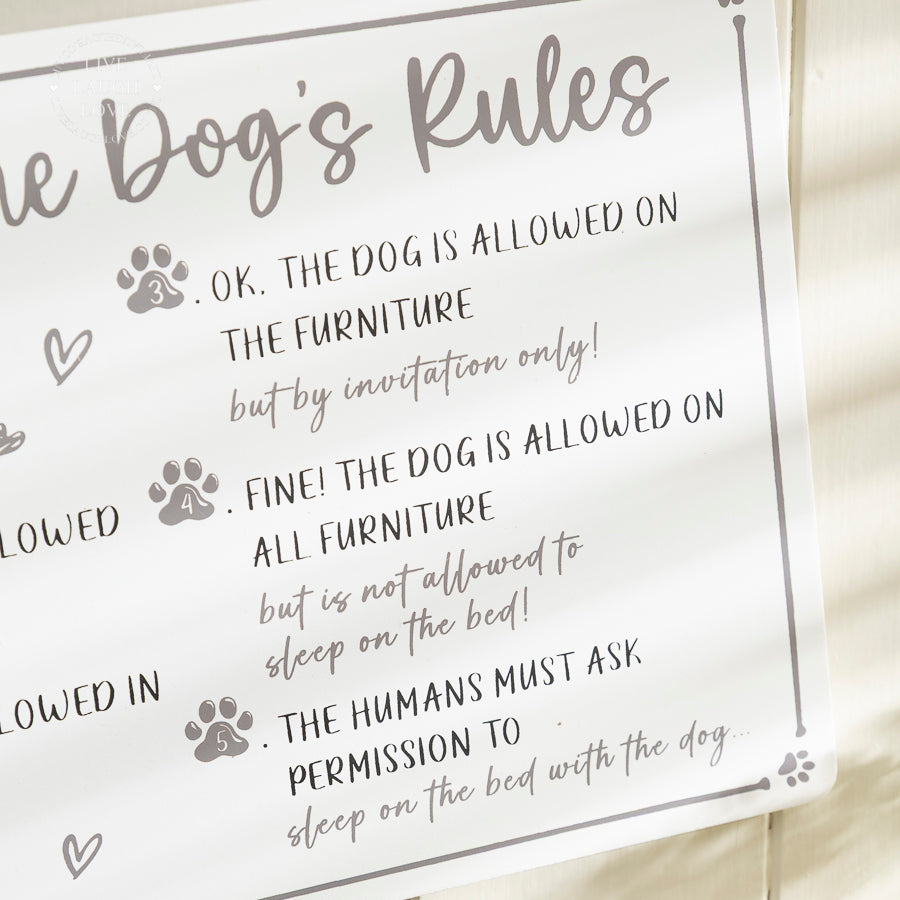 LIVE
LAUGH
LOVE
he Dog's Rules
3. OK, THE DOG IS ALLOWED ON
THE FURNITURE
but by invitation only!
LOWED
4. FINE! THE DOG IS ALLOWED ON
ALL FURNITURE
but is not allowed to
sleep on the bed!
LOWED IN
5. THE HUMANS MUST ASK
PERMISSION TO
sleep on the bed with the dog...